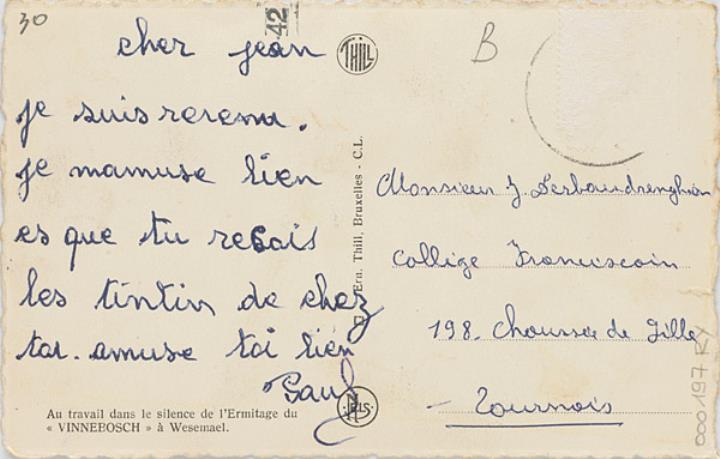 30
42
cher jean
je suis revenu.
je mamuse bien
es que tu resais
les tintin de chez
toi. amuse toi bien
Paul
Au travail dans le silence de l'Ermitage du
« VINNEBOSCH » à Wesemael.
THILL
Ern. Thill, Bruxelles - C.L.
NELS
B
Monsieur J.
Collège Franciscain
198. Chaussée de Lille
Tournais
000197 RV